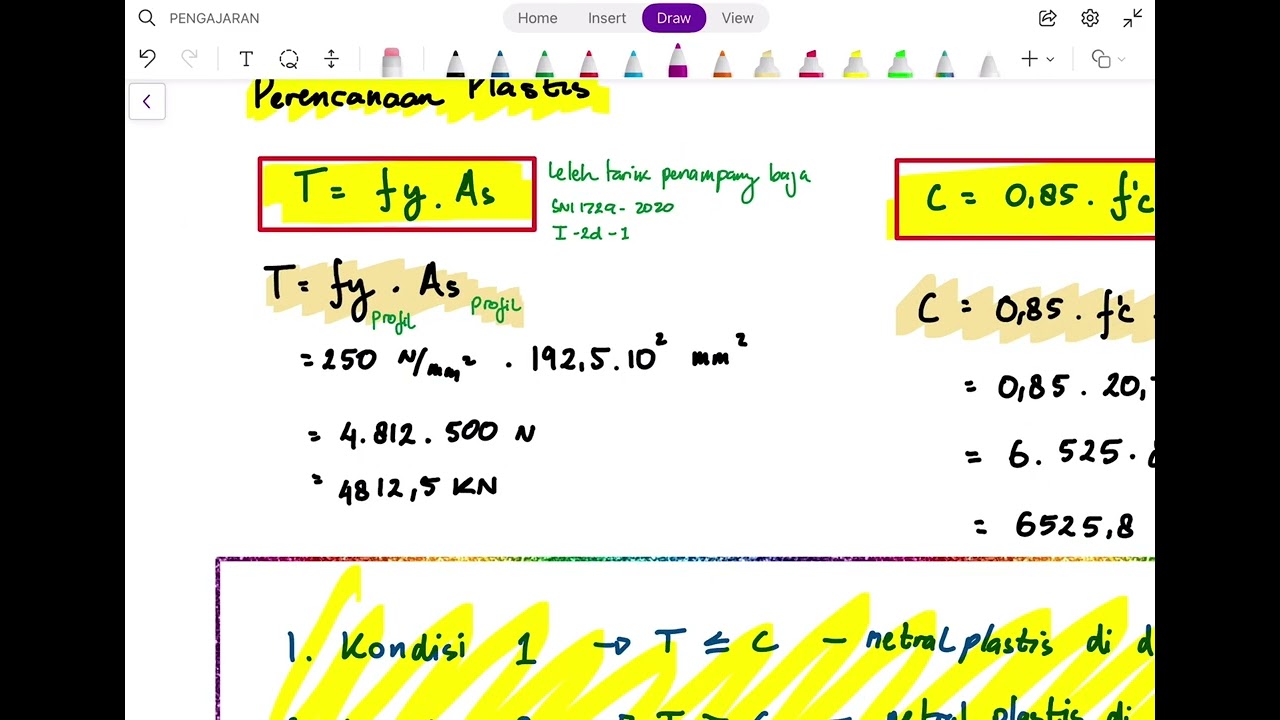 PENGAJARAN
Home Insert Draw View
T
Perencanaan Plastis
T = fy . As
Leleh tarik penampang baja
SNI 1729 - 2020
I - 2d - 1
T = fy . As
profil
profil
= 250 N/mm² . 192,5 . 10² mm²
= 4.812.500 N
= 4812,5 KN
C = 0,85 . f'c
C = 0,85 . f'c
= 0,85 . 20,
= 6.525.
= 6525,8
1. Kondisi 1 → T ≤ C – netral plastis di d
netral plastis di